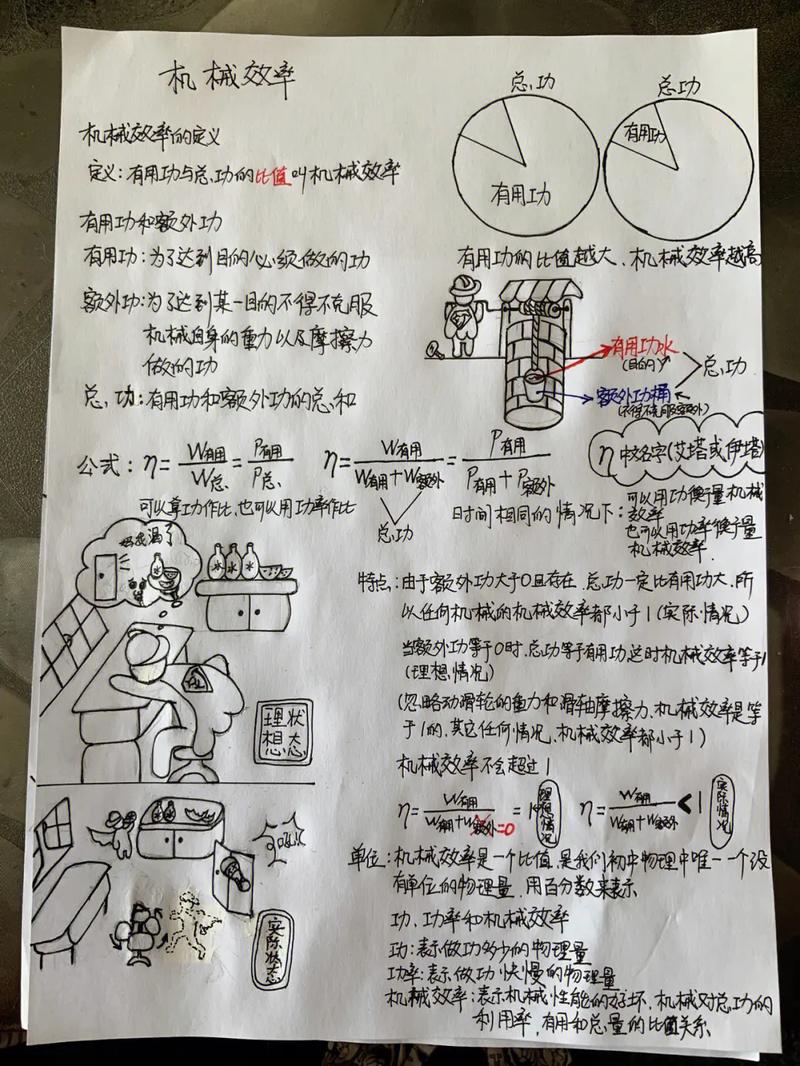 机械效率
机械效率的定义
定义：有用功与总功的比值叫机械效率
有用功和额外功
有用功：为了达到目的必须做的功
额外功：为了达到某一目的不得不克服
机械自身的重力以及摩擦力
做的功
总功：有用功和额外功的总和
总功
有用功
总功
有用功
有用功的比值越大、机械效率越高
有用功水
(目的)
额外功桶
(不得不克服额外)
总功
公式：η = W有用/W总 = P有用/P总
η = W有用/(W有用+W额外) = P有用/(P有用+P额外)
总功
可以算功作比，也可以用功率作比
η 中文名字(艾塔或伊塔)
时间相同的情况下：
可以用功衡量机械
效率
也可以用功率衡量
机械效率
特点：由于额外功大于0且存在、总功一定比有用功大、所
以任何机械的机械效率都小于1(实际情况)
当额外功等于0时、总功等于有用功、这时机械效率等于1
(理想情况)
(忽略动滑轮的重力和滑轴摩擦力、机械效率是等
于1的，其它任何情况、机械效率都小于1)
机械效率不会超过1
η = W有用/(W有用+W额外=0) = 1
理想情况
η = W有用/(W有用+W额外) < 1
实际情况
单位：机械效率是一个比值，是我们初中物理中唯一一个没
有单位的物理量，用百分数来表示
功、功率和机械效率
功：表示做功多少的物理量
功率：表示做功快慢的物理量
机械效率：表示机械性能的好坏、机械对总功的
利用率，有用和总量的比值关系
好像渴了
水
水
水
理想状态
实际状态